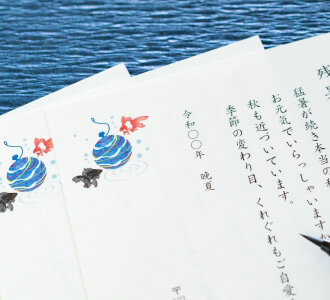 残
猛暑が続き本当の
お元気でいらっしゃいますか
秋も近づいています。
季節の変わり目、くれぐれもご自愛
令和〇〇年　晩夏
〒